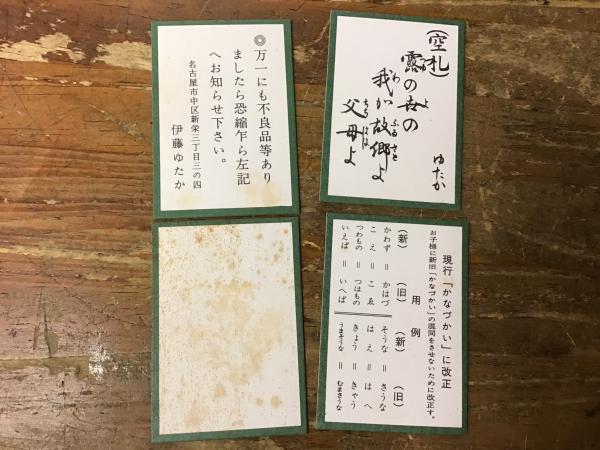 (空札)
露の世の
我が故郷よ
父母よ
ゆたか
◎万一にも不良品等あり
ましたら恐縮乍ら左記
へお知らせ下さい。
名古屋市中区新栄三丁目三の四
伊藤ゆたか
現行「かなづかい」に改正
お子様に新旧「かなづかい」の混同をさせないために改正す。
用例
(新) (旧) (新) (旧)
かわず=かはづ そうな=さうな
こえ=こゑ はえ=はへ
つわもの=つはもの きょう=きやう
いえば=いへば うまそうな=むまさうな